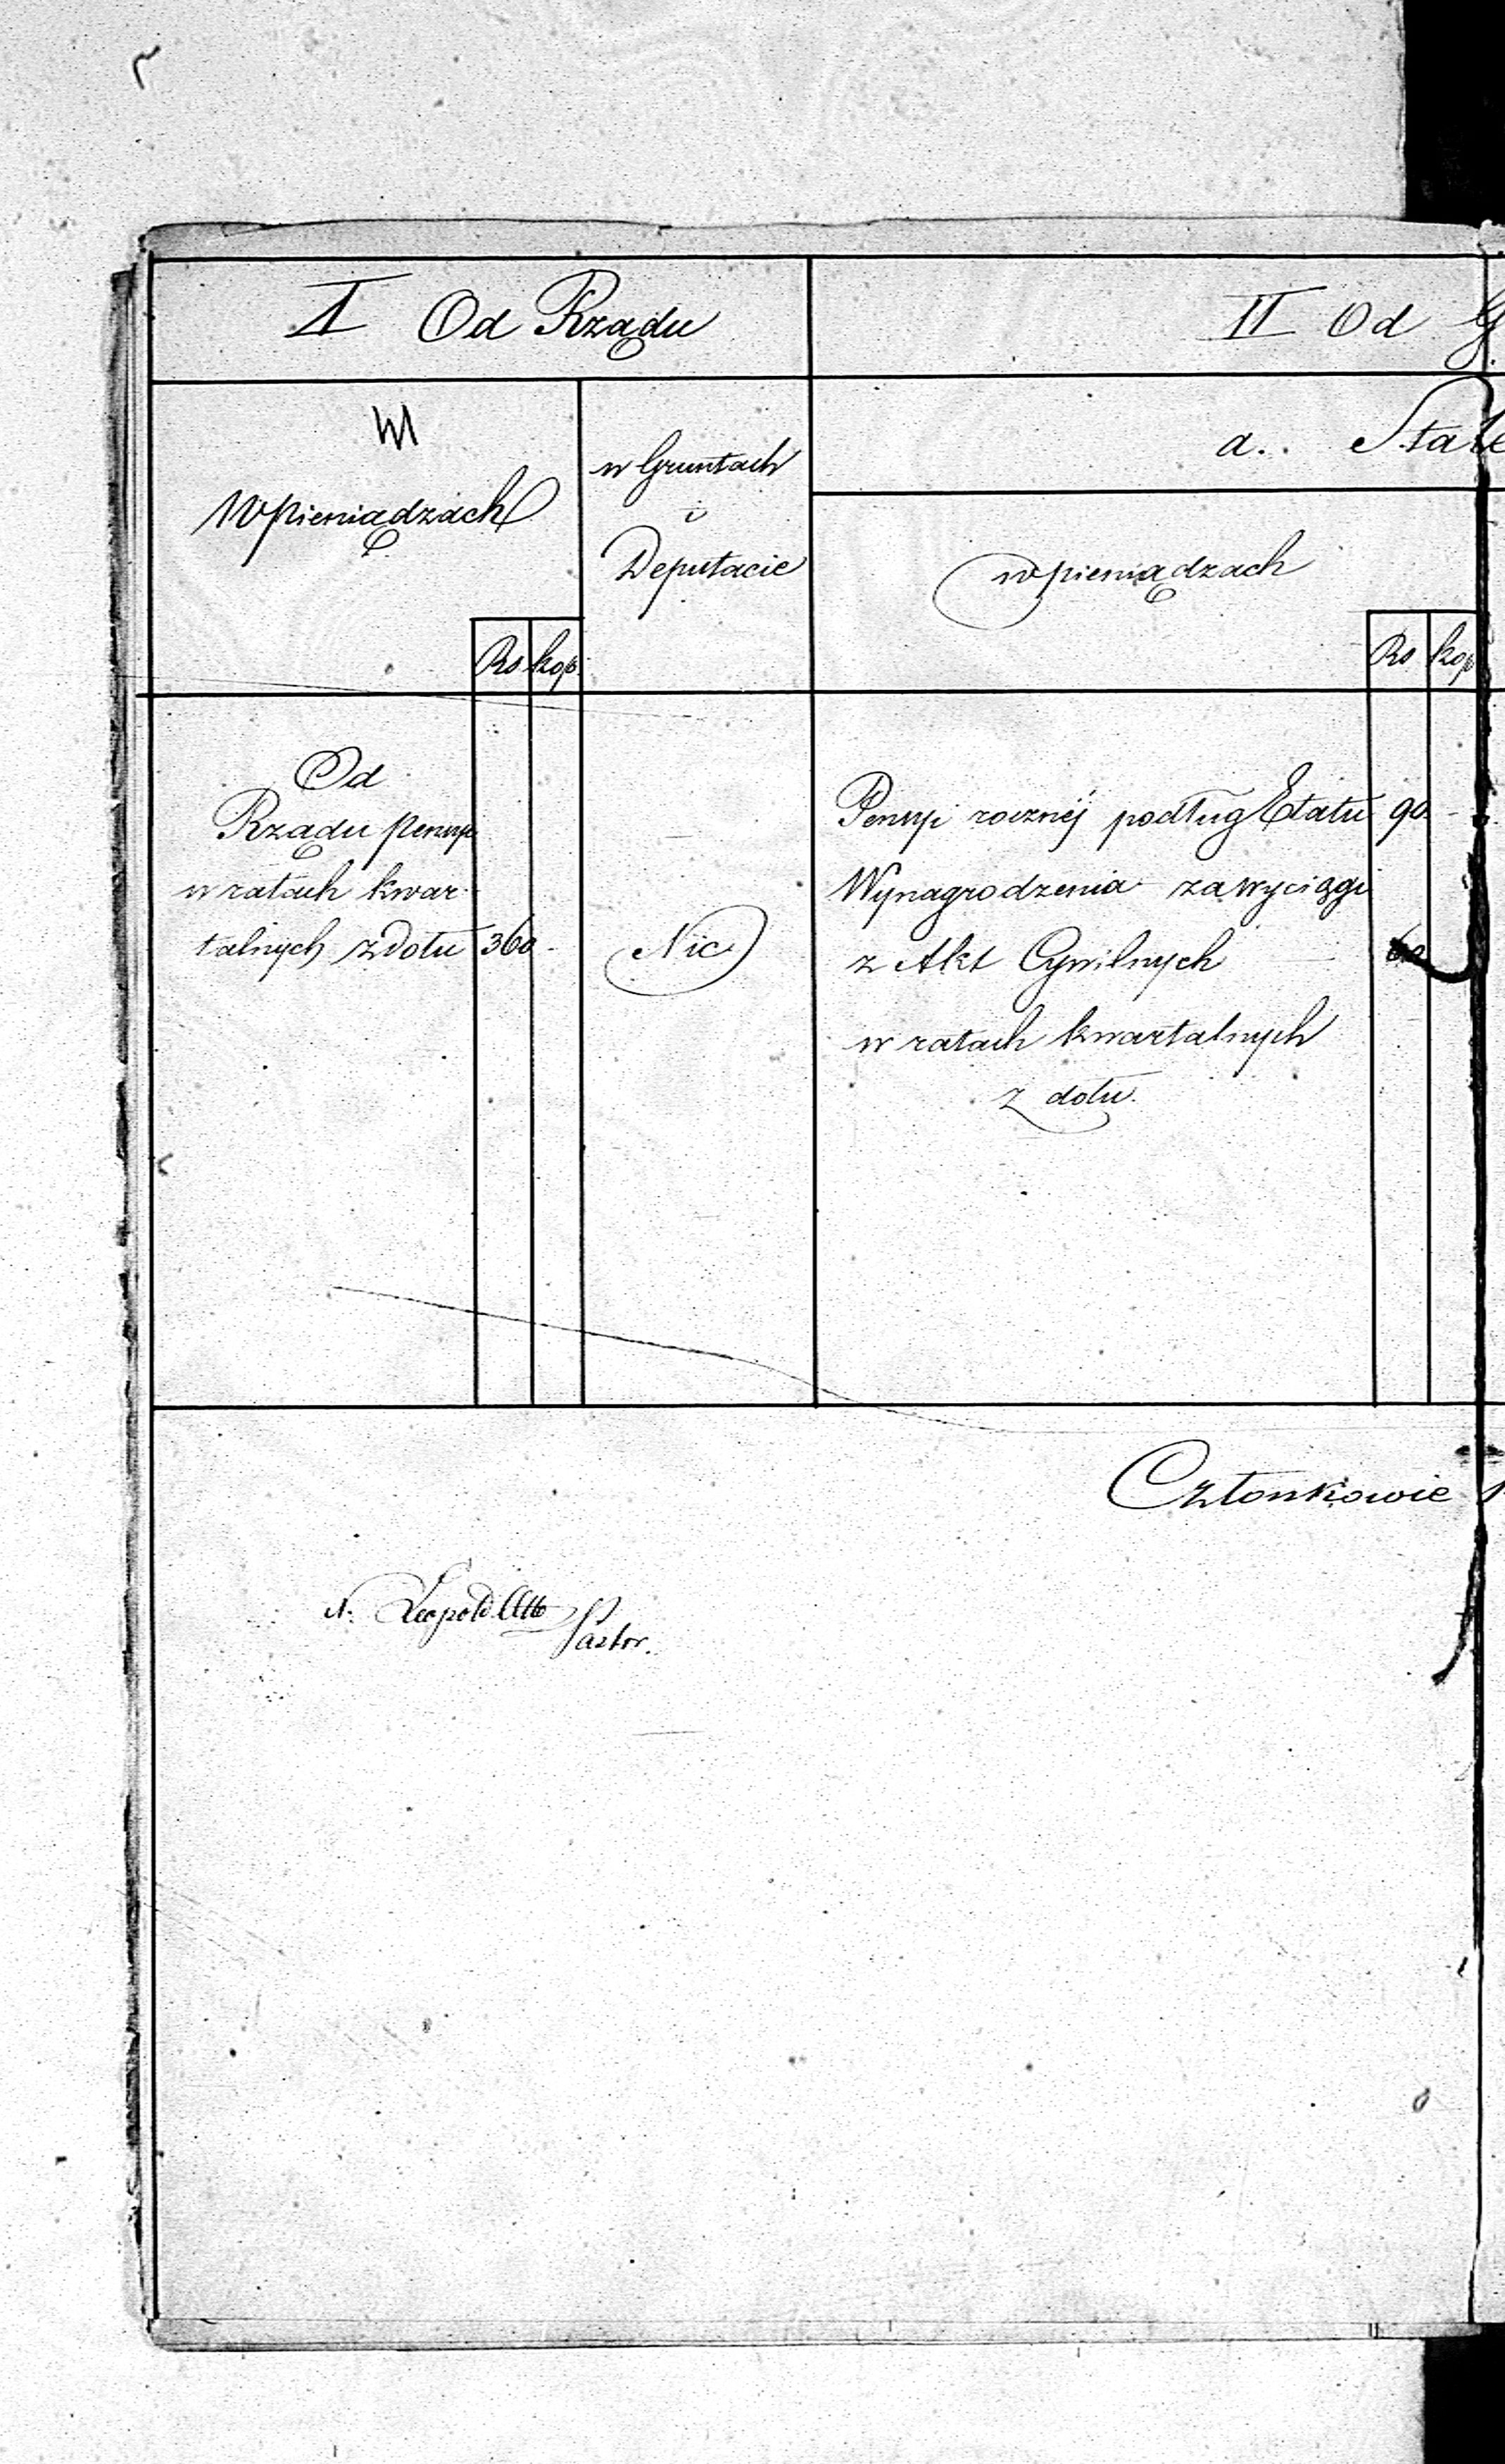 I Od Rządu
II Od G
W
W pieniądzach
w Gruntach
i
Deputacie
a.. Stałe
w pieniądzach
Rs kop.
Rs kop
Od
Rządu pensyi
w ratach kwar-
talnych z dołu 360 -
Nic
Pensyi rocznéj podług Etatu 90 -
Wynagrodzenia za wyciągi
z Akt Cywilnych
w ratach kwartalnych
z dołu.
Członkowie
Leopold Otto
Pastor.